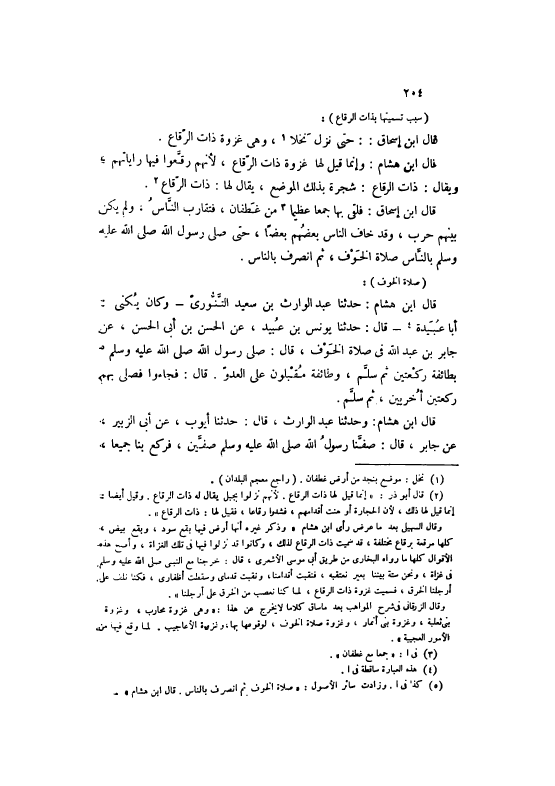 ٢٠٤
( سبب تسميتها بذات الرقاع ) :
قال ابن إسحاق : : حتى نزل نخلا ١ ، وهى غزوة ذات الرّقاع .
قال ابن هشام : وإنما قيل لها غزوة ذات الرّقاع ، لأنهم رقَّعوا فيها راياتهم ؛
ويقال : ذات الرقاع : شجرة بذلك الموضع ، يقال لها : ذات الرّقاع ٢ .
قال ابن إسحاق : فلقى بها جمعا عظيما ٣ من غَطفان ، فتقارب النَّاسُ ، ولم يكن
بينهم حرب ، وقد خاف الناس بعضُهم بعضًا ، حتى صلى رسول الله صلى الله عليه
وسلم بالنَّاس صلاة الخَوْف ، ثم انصرف بالناس .
( صلاة الخوف ) :
قال ابن هشام : حدثنا عبد الوارث بن سعيد التَّنُّورىّ – وكان يُكْنى :
أبا عُبَيدة ٤ – قال : حدثنا يونس بن عُبيد ، عن الحسن بن أبى الحسن ، عن
جابر بن عبد الله فى صلاة الخَوْف ، قال : صلى رسول الله صلى الله عليه وسلم ٥
بطائفة ركعتين ثم سلَّم ، وطائفة مُقْبلون على العدوّ . قال : فجاءوا فصلى بهم
ركعتين أُخريين ، ثم سلَّم .
قال ابن هشام : وحدثنا عبد الوارث ، قال : حدثنا أيوب ، عن أبى الزبير ،
عن جابر ، قال : صفَّنا رسولُ الله صلى الله عليه وسلم صفَّين ، فركع بنا جميعا ،
(١) نخل : موضع بنجد من أرض غطفان . ( راجع معجم البلدان ) .
(٢) قال أبو ذر : « إنما قيل لها ذات الرقاع . لأنهم نزلوا بجبل يقال له ذات الرقاع . وقيل أيضا :
إنما قيل لها ذلك ، لأن الحجارة أوهنت أقدامهم ، فشدوا رقاعا ، فقيل لها : ذات الرقاع » .
وقال السهيل بعد ما عرض رأى ابن هشام « وذكر غيره أنها أرض فيها بقع سود ، وبقع بيض ،
كلها مرقعة برقاع مختلفة ، قد سميت ذات الرقاع لذلك ، وكانوا قد نزلوا فيها فى تلك الغزاة ، وأصح هذه
الأقوال كلها ما رواه البخارى من طريق أبى موسى الأشعرى ، قال : خرجنا مع النبى صلى الله عليه وسلم
فى غزاة ، ونحن ستة بيننا بعير نعتقبه ، فنقبت أقدامنا، ونقبت قدماى وسقطت أظفارى ، فكنا نلف على
أرجلنا الخرق ، فسميت غزوة ذات الرقاع ، لما كنا نعصب من الخرق على أرجلنا » .
وقال الزرقانى فى شرح المواهب بعد ماساق كلاما لايخرج عن هذا : « وهى غزوة محارب ، وغزوة
بنى ثعلبة ، وغزوة بنى أنمار ، وغزوة صلاة الخوف ، لوقوعها بها، وغزوة الأعاجيب . لما وقع فيها من
الأمور العجيبة » .
(٣) فى ا : « جمعا مع غطفان » .
(٤) هذه العبارة ساقطة فى ا .
(٥) كذا فى ا . وزادت سائر الأصول : « صلاة الخوف ثم انصرف بالناس . قال ابن هشام » .